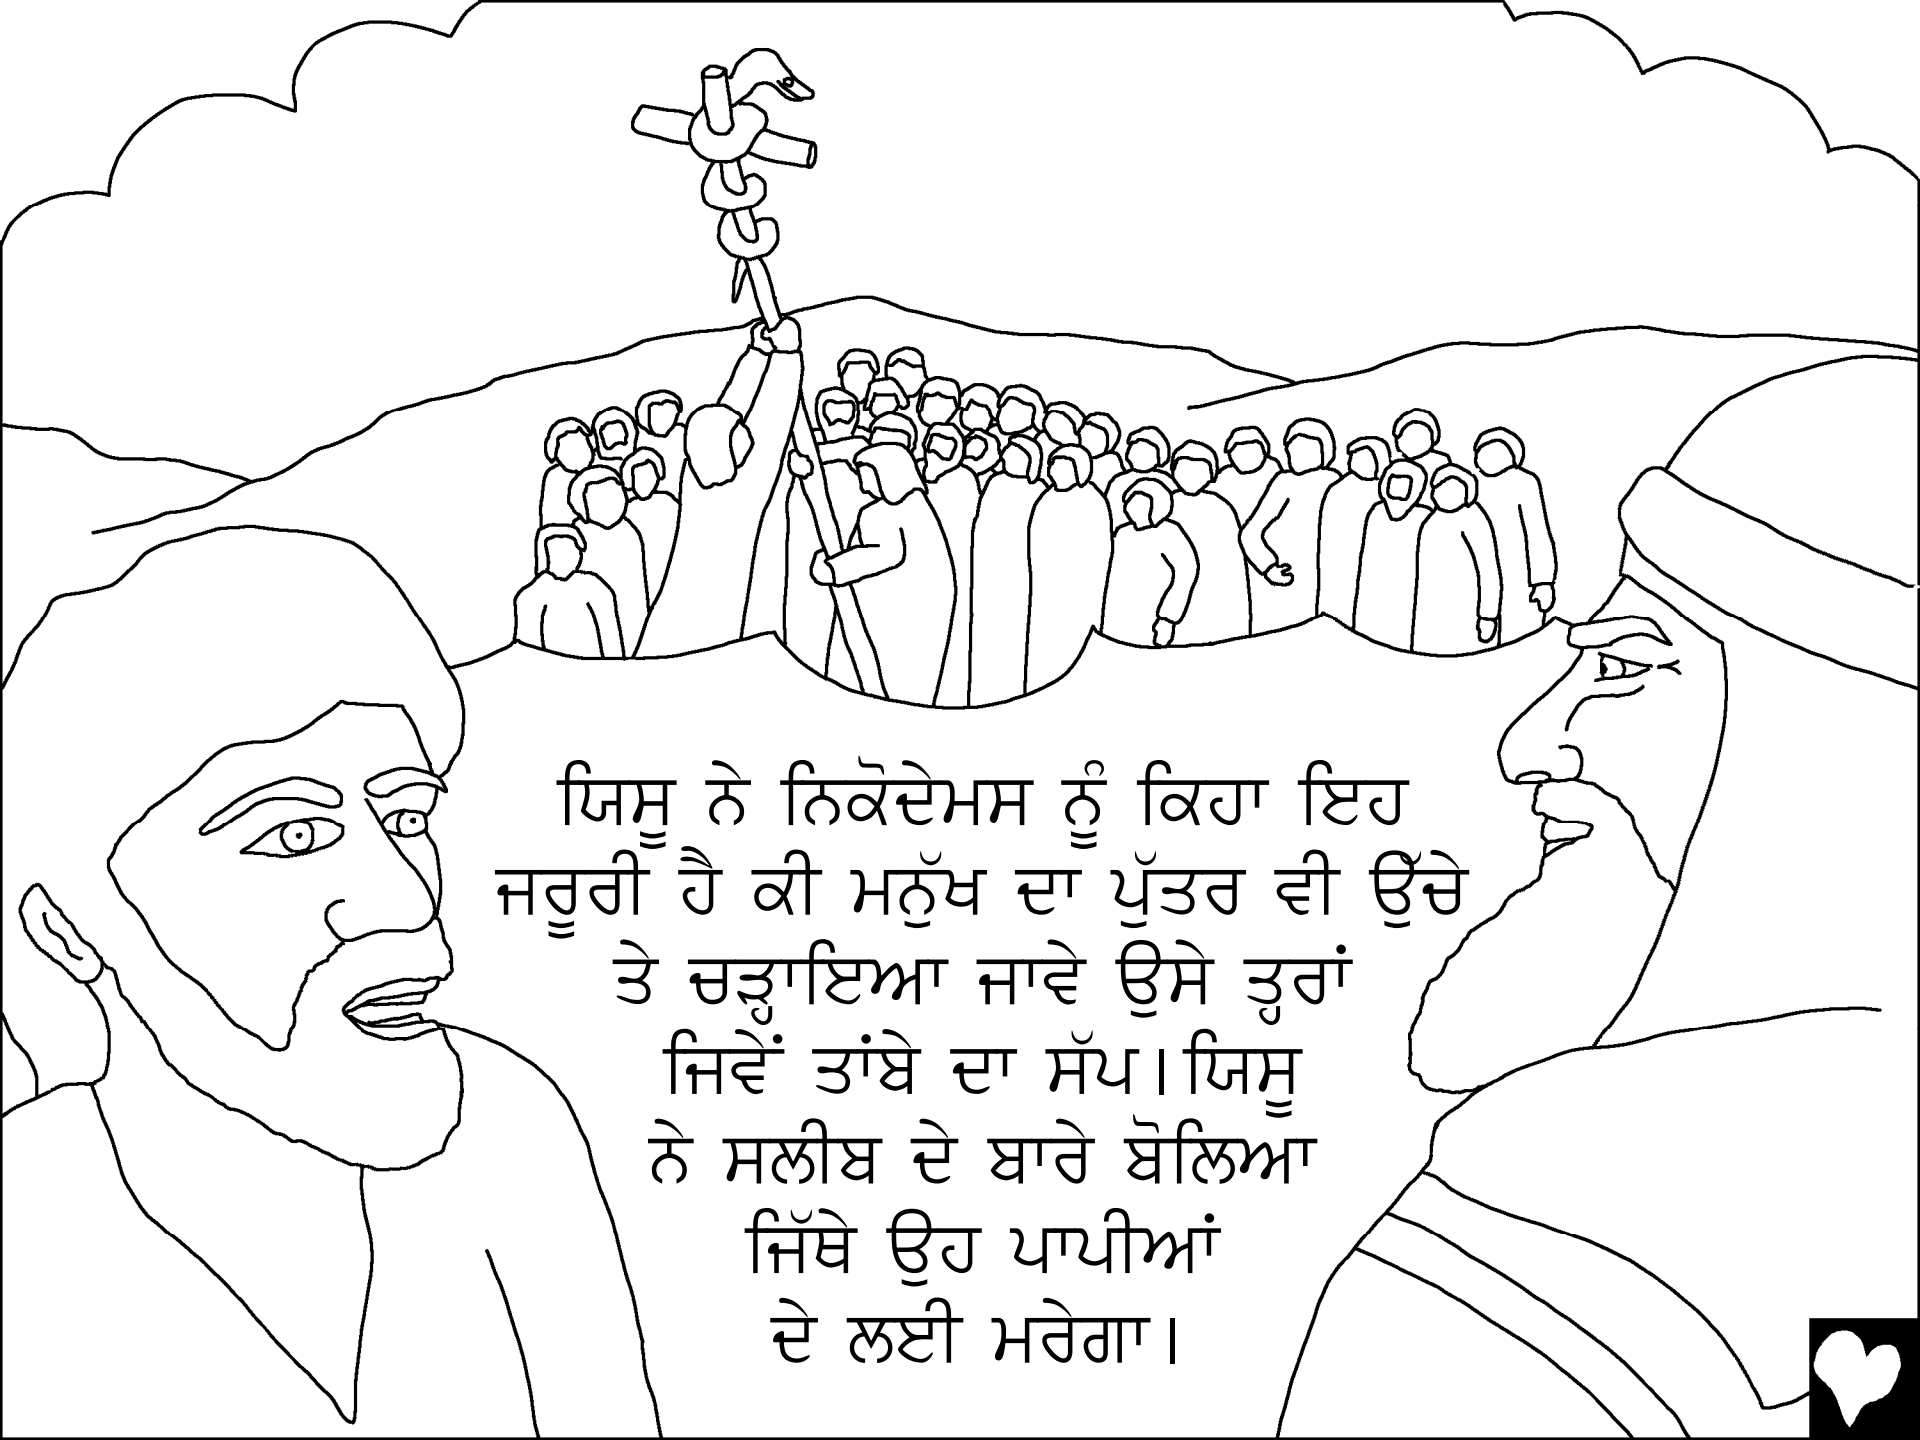 ਯਿਸੂ ਨੇ ਨਿਕੋਦੇਮਸ ਨੂੰ ਕਿਹਾ ਇਹ
ਜਰੂਰੀ ਹੈ ਕੀ ਮਨੁੱਖ ਦਾ ਪੁੱਤਰ ਵੀ ਉੱਚੇ
ਤੇ ਚੜ੍ਹਾਇਆ ਜਾਵੇ ਉਸੇ ਤ੍ਹਰਾਂ
ਜਿਵੇਂ ਤਾਂਬੇ ਦਾ ਸੱਪ। ਯਿਸੂ
ਨੇ ਸਲੀਬ ਦੇ ਬਾਰੇ ਬੋਲਿਆ
ਜਿੱਥੇ ਉਹ ਪਾਪੀਆਂ
ਦੇ ਲਈ ਮਰੇਗਾ।